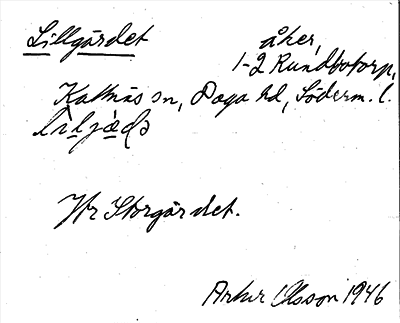 Lillgärdet åker,
1-2 Rundbotorp,
Kattnäs sn, Daga hd, Söderm. l.
Hr Storgärdet.
Artur Olsson 1946